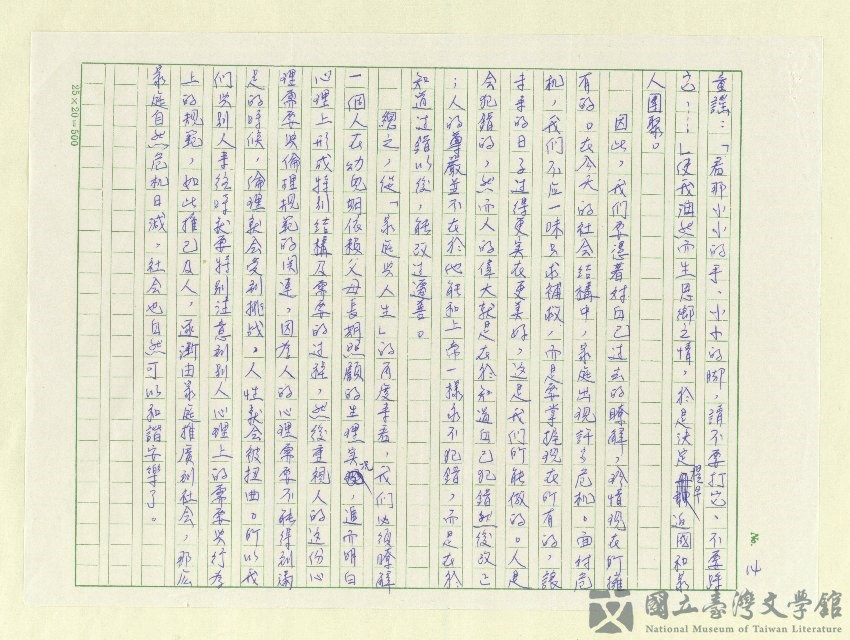 14
童謠:「看那小小的手、小小的腳,請不要打它、不要踩
它,…」使我油然而生思鄉之情,於是決定提早返國和家
人團聚。
因此,我們要憑著對自己過去的瞭解,珍惜現在所擁
有的。在今天的社會結構中,家庭出現許多危机。面对危
机,我們不应一味只求補救,而是要掌握現在所有的,讓
未來的日子过得更美在更美好,这是我們所能做的。人是
会犯錯的,然而人的偉大就是在於知道自己犯錯然後改之
;人的尊嚴並不在於他能和上帝一樣永不犯錯,而是在於
知道过錯以後,能改过遷善。
總之,從「家庭与人生」的角度來看,我們必須瞭解
一個人在幼兒期依賴父母長期照顧的生理实况,進而明白
心理上形成特別結構及需要的过程,然後重視人的这份心
理需要与倫理規範的関連,因為人的心理需要不能得到滿
足的時候,倫理就会受到挑战,人性就会被扭曲。所以我
們与別人來往時就要特別注意到別人心理上的需要与行為
上的規範,如此推己及人,逐漸由家庭推廣到社会,那么
家庭自然危机日減,社会也自然可以和諧安樂了。
25×20=500
國立臺灣文學館
National Museum of Taiwan Literature